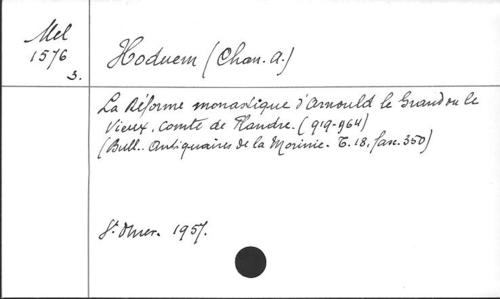 Mel
1576
3.
Hoduem (Chan. A.)
La Réforme monastique d'Arnould le Grand ou le
Vieux, comte de Flandre. (919-964)
(Bull. Antiquaires de la Morinie. T. 18, fasc. 350)
St Omer. 1957.